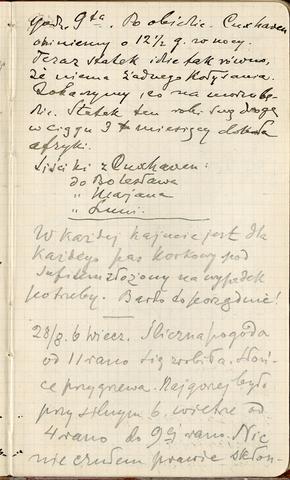 godz. 9ta. Po obiedzie. Cuxhaven
miniemy o 12½ g. w nocy.
Teraz statek idzie tak równo,
że niema żadnego kołysania.
Zobaczymy, co na morzu bę-
dzie. Statek ten robi swą drogę
w ciągu 3 miesięcy dokoła
Afryki.
Listki z Cuxhaven:
do Bolesława
" Marjana
" Luni.
W każdej kajucie jest dla
każdego pas korkowy pod
sufitem złożony na wypadek
potrzeby. Bardzo porządnie!
28/8. 6 wiecz. Śliczna pogoda
od 11 rano się zrobiła. Słoń-
ce przygrzewa. Najgorzej było
przy silnym b. wietrze od
4 rano do 9ej rano. Nic
nie czułem prawie skłon-